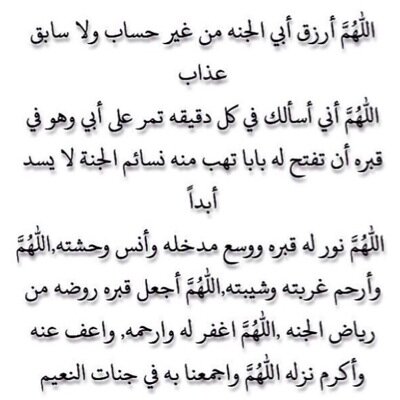 اللهُمَّ أرزق أبي الجنه من غير حساب ولا سابق
عذاب
اللهُمَّ أني أسألك في كل دقيقه تمر على أبي وهو في
قبره أن تفتح له بابا تهب منه نسائم الجنة لا يسد
أبداً
اللهُمَّ نور له قبره ووسع مدخله وأنس وحشته,اللهُمَّ
وأرحم غربته وشيبته,اللهُمَّ أجعل قبره روضه من
رياض الجنه ,اللهُمَّ اغفر له وارحمه, واعف عنه
وأكرم نزله اللهُمَّ واجمعنا به في جنات النعيم